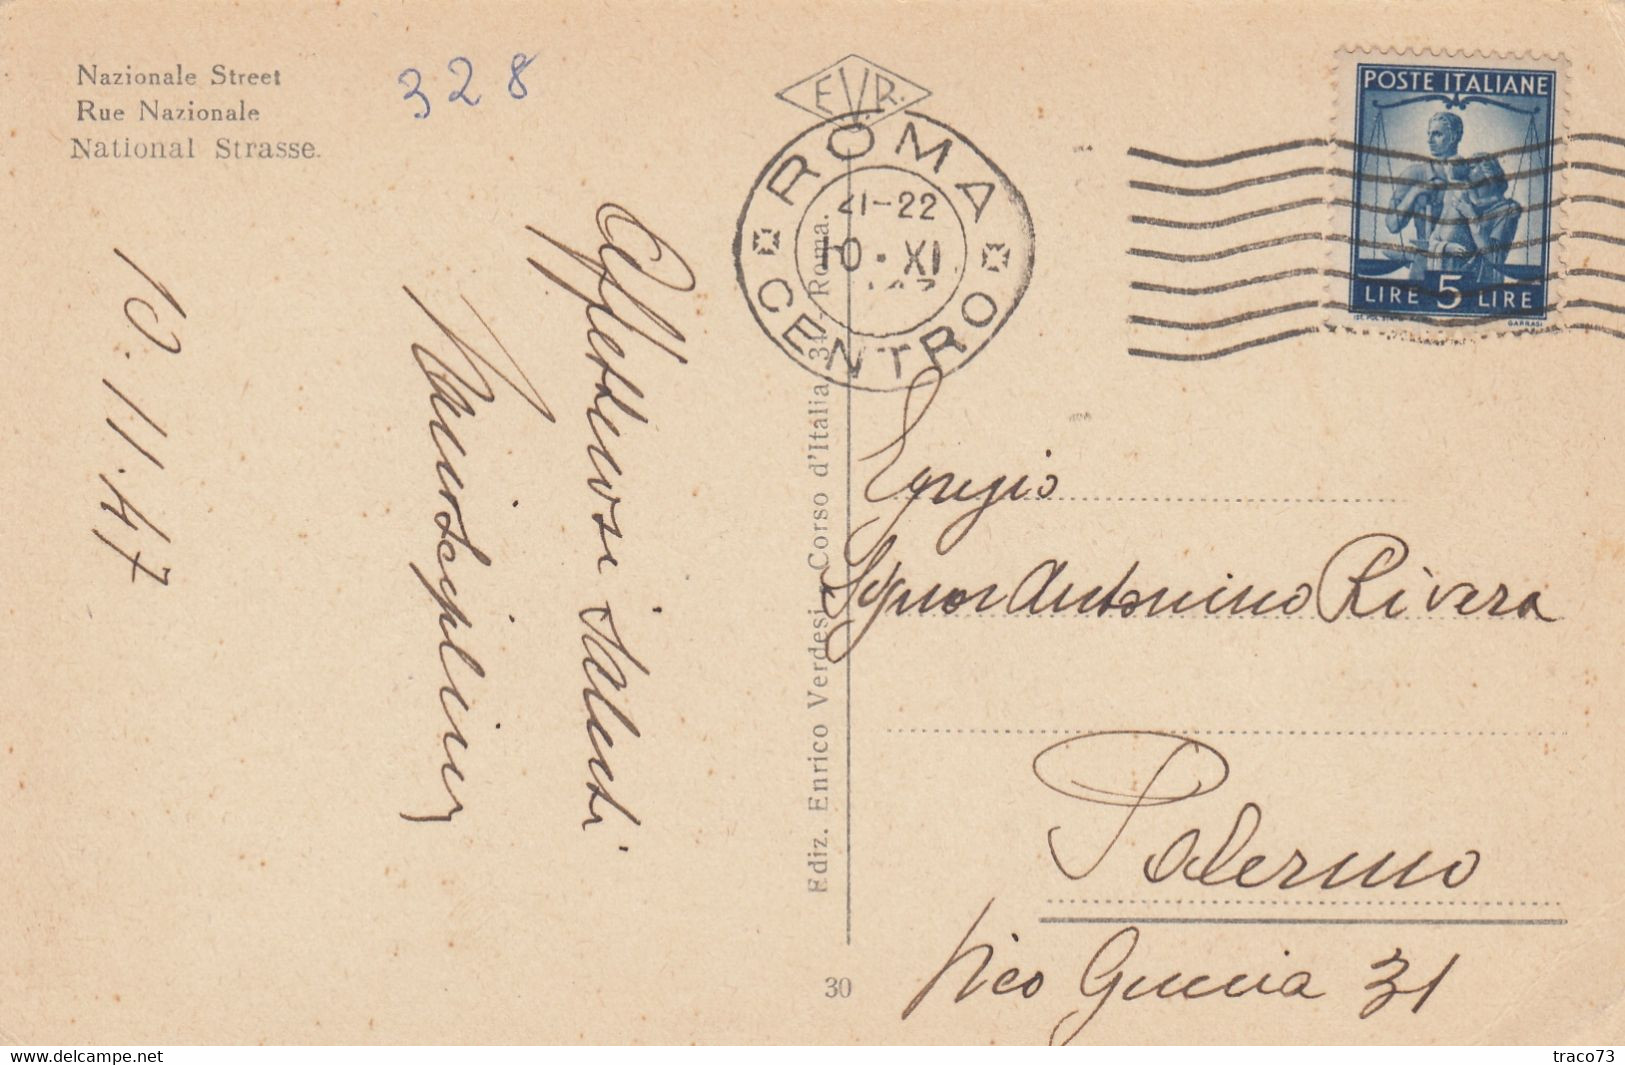 Nazionale Street
Rue Nazionale
National Strasse.
328
E.V.R.
ROMA
CENTRO
21-22
10·XI
POSTE ITALIANE
LIRE 5 LIRE
GARRASI
10.11.47
Affettuosi saluti
Ediz. Enrico Verdesi, Corso d'Italia 34 - Roma.
30
Egregio
Signor Antonino Rivera
Palermo
Pico 31
www.delcampe.net
traco73